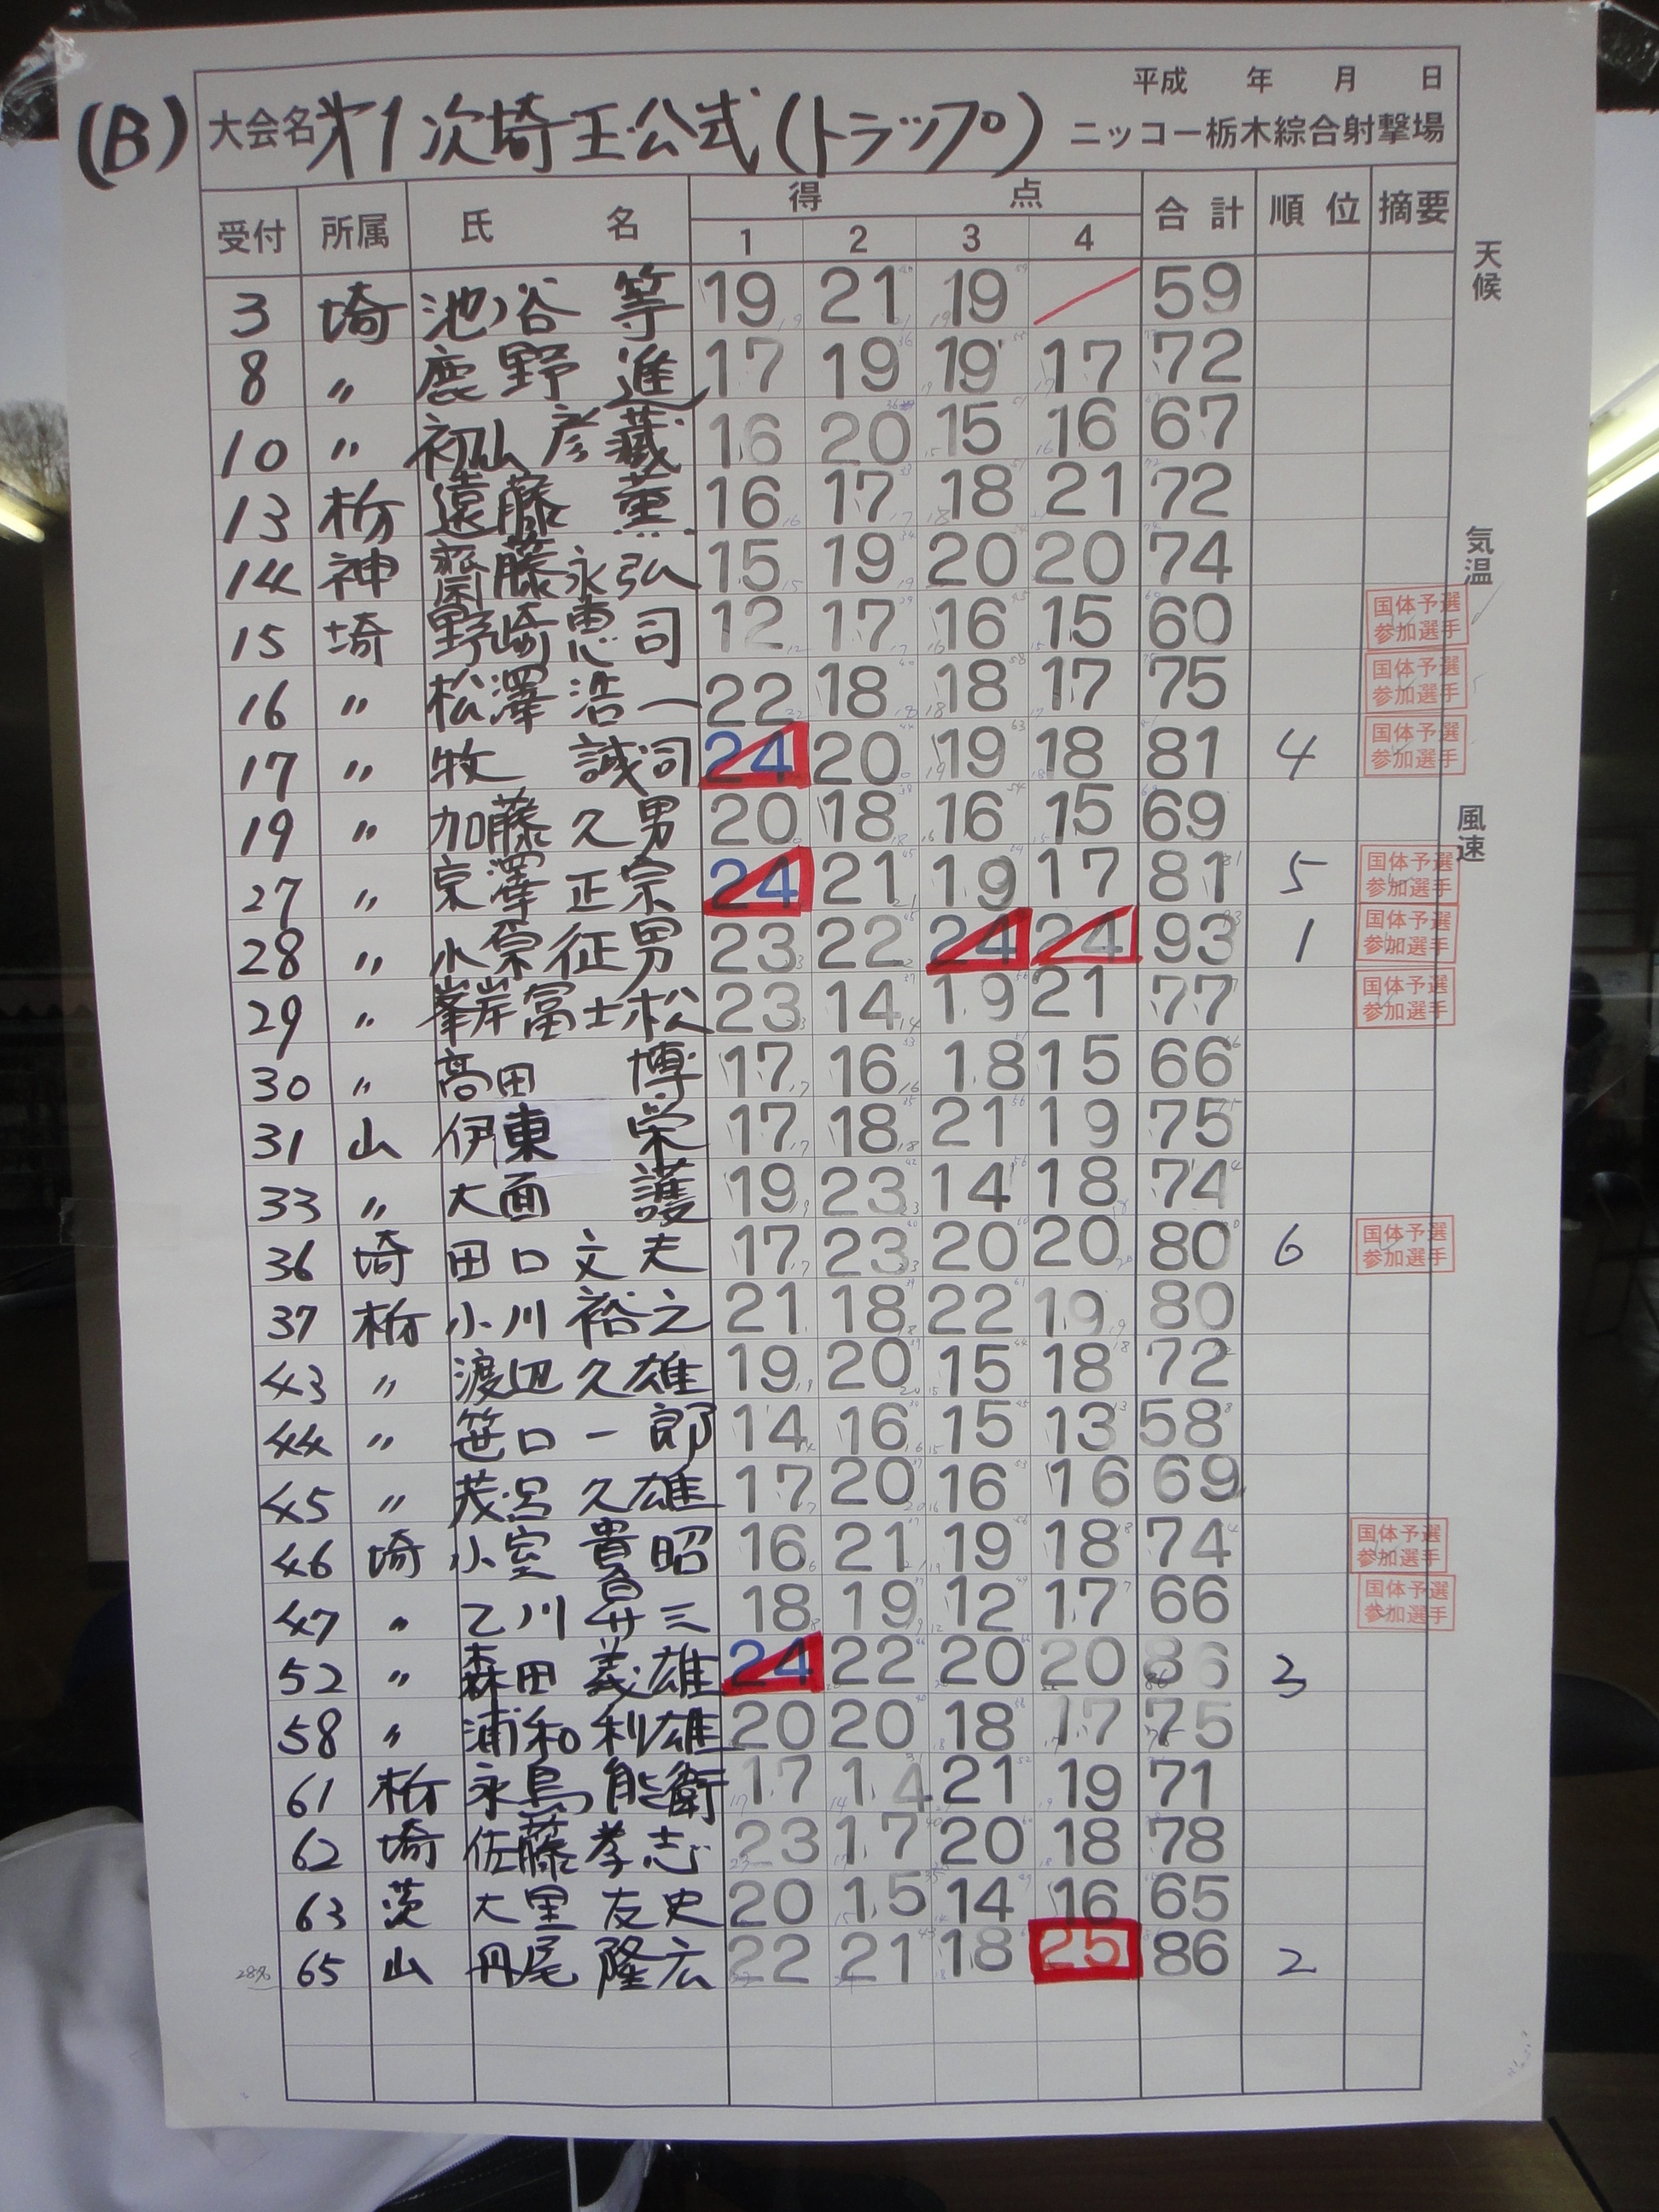 平成 年 月 日
(B) 大会名 第1次埼玉公式(トラップ) ニッコー栃木綜合射撃場
受付 所属 氏名 得点 合計 順位 摘要
1 2 3 4
天候
3 埼 池谷 等 19 21 19 59
8 〃 鹿野 進 17 19 19 17 72
10 〃 初仙 彦蔵 16 20 15 16 67
13 栃 遠藤 薫 16 17 18 21 72
14 神 齋藤永弘 15 19 20 20 74
気温
15 埼 野崎恵司 12 17 16 15 60 国体予選参加選手
16 〃 松澤浩一 22 18 18 17 75 国体予選参加選手
17 〃 牧 誠司 24 20 19 18 81 4 国体予選参加選手
19 〃 加藤久男 20 18 16 15 69
風速
27 〃 京澤正宗 24 21 19 17 81 5 国体予選参加選手
28 〃 小宗征男 23 22 24 24 93 1 国体予選参加選手
29 〃 峯岸富士松 23 14 19 21 77 国体予選参加選手
30 〃 高田 博 17 16 18 15 66
31 山 伊東 栄 17 18 21 19 75
33 〃 大面 護 19 23 14 18 74
36 埼 田口文夫 17 23 20 20 80 6 国体予選参加選手
37 栃 小川裕之 21 18 22 19 80
43 〃 渡辺久雄 19 20 15 18 72
44 〃 笹口一郎 14 16 15 13 58
45 〃 茂呂久雄 17 20 16 16 69
46 埼 小室貴昭 16 21 19 18 74 国体予選参加選手
47 〃 乙川昇三 18 19 12 17 66 国体予選参加選手
52 〃 森田義雄 24 22 20 20 86 3
58 〃 浦和利雄 20 20 18 17 75
61 栃 永島能衛 17 14 21 19 71
62 埼 佐藤孝志 23 17 20 18 78
63 茨 大里友史 20 15 14 16 65
65 山 丹尾隆広 22 21 18 25 86 2